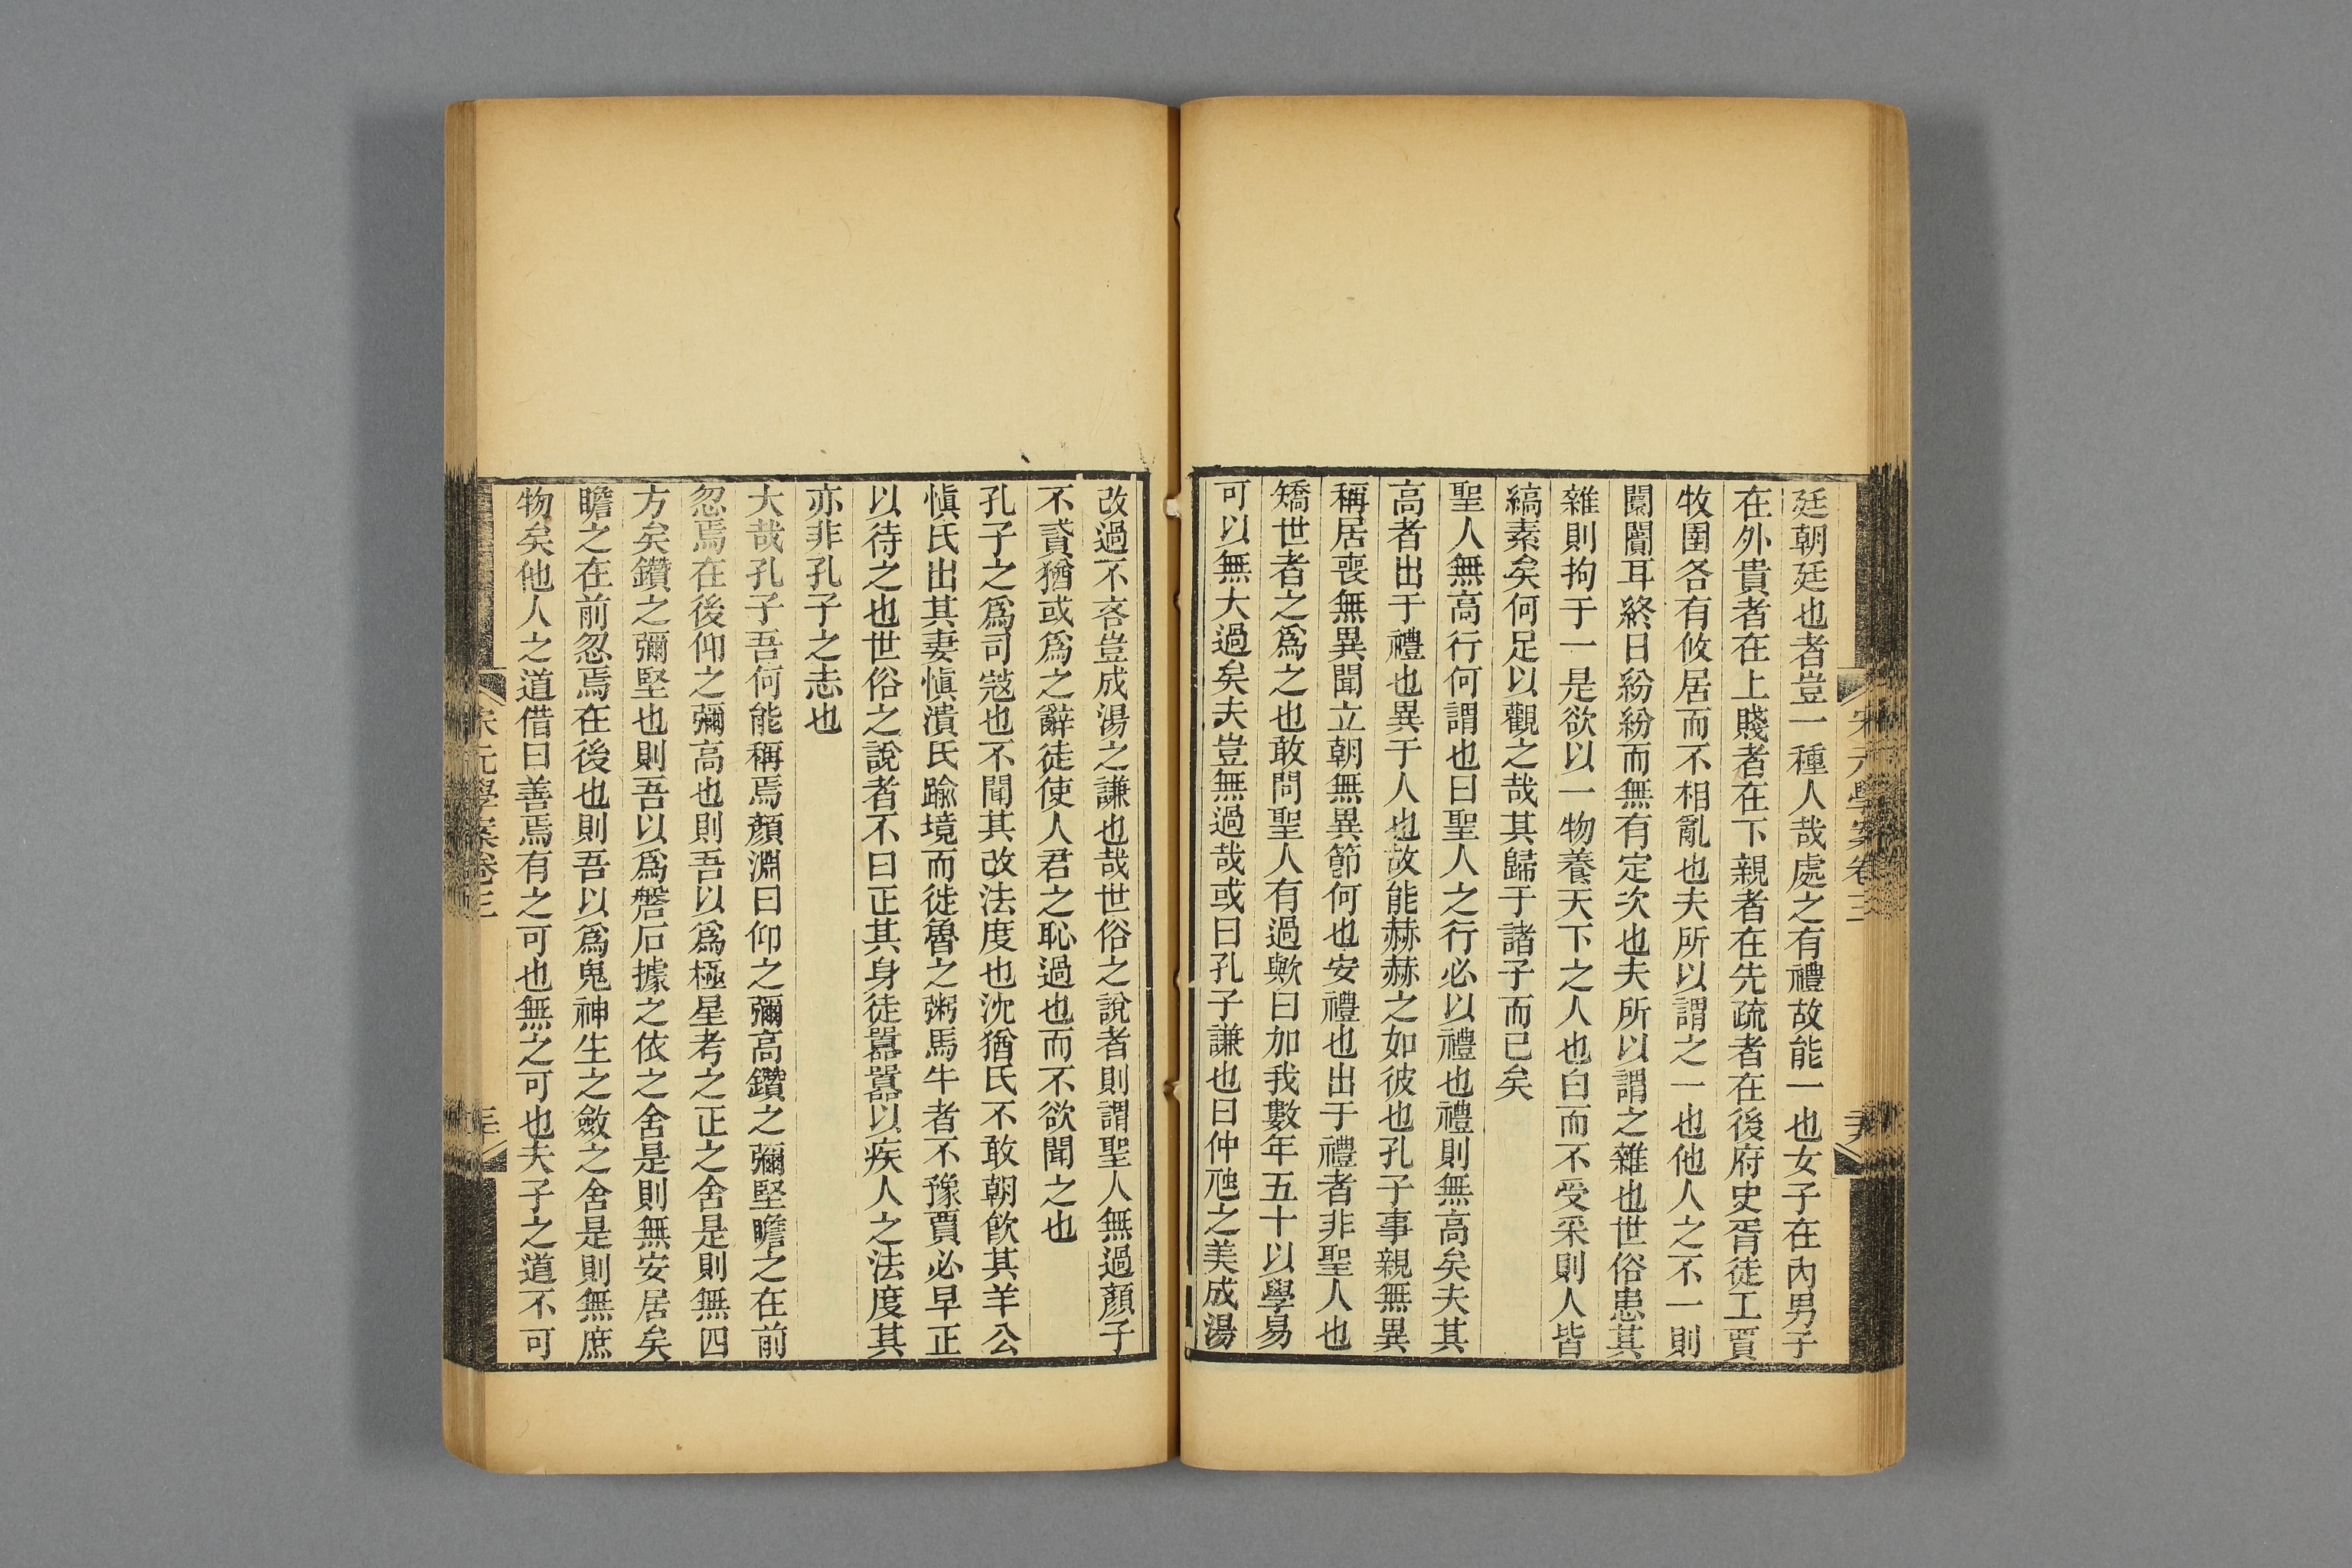 宋元學案卷三
廷朝廷也者豈一種人哉處之有禮故能一也女子在內男子
在外貴者在上賤者在下親者在先疏者在後府史胥徒工賈
牧圉各有攸居而不相亂也夫所以謂之一也他人之不一則
闤闠耳終日紛紛而無有定次也夫所以謂之雜也世俗患其
雜則拘于一是欲以一物養天下之人也白而不受采則人皆
縞素矣何足以觀之哉其歸于諸子而已矣
聖人無高行何謂也曰聖人之行必以禮也禮則無高矣夫其
高者出于禮也異于人也故能赫赫之如彼也孔子事親無異
稱居喪無異聞立朝無異節何也安禮也出于禮者非聖人也
矯世者之爲之也敢問聖人有過歟曰加我數年五十以學易
可以無大過矣夫豈無過哉或曰孔子謙也曰仲虺之美成湯
改過不吝豈成湯之謙也哉世俗之說者則謂聖人無過顏子
不貳猶或爲之辭徒使人君之恥過也而不欲聞之也
孔子之爲司寇也不聞其改法度也沈猶氏不敢朝飲其羊公
愼氏出其妻愼潰氏踰境而徙魯之粥馬牛者不豫賈必早正
以待之也世俗之說者不曰正其身徒囂囂以疾人之法度其
亦非孔子之志也
大哉孔子吾何能稱焉顏淵曰仰之彌高鑽之彌堅瞻之在前
忽焉在後仰之彌高也則吾以爲極星考之正之舍是則無四
方矣鑽之彌堅也則吾以爲磐石據之依之舍是則無安居矣
瞻之在前忽焉在後也則吾以爲鬼神生之斂之舍是則無庶
物矣他人之道借曰善焉有之可也無之可也夫子之道不可
宋元學案卷三